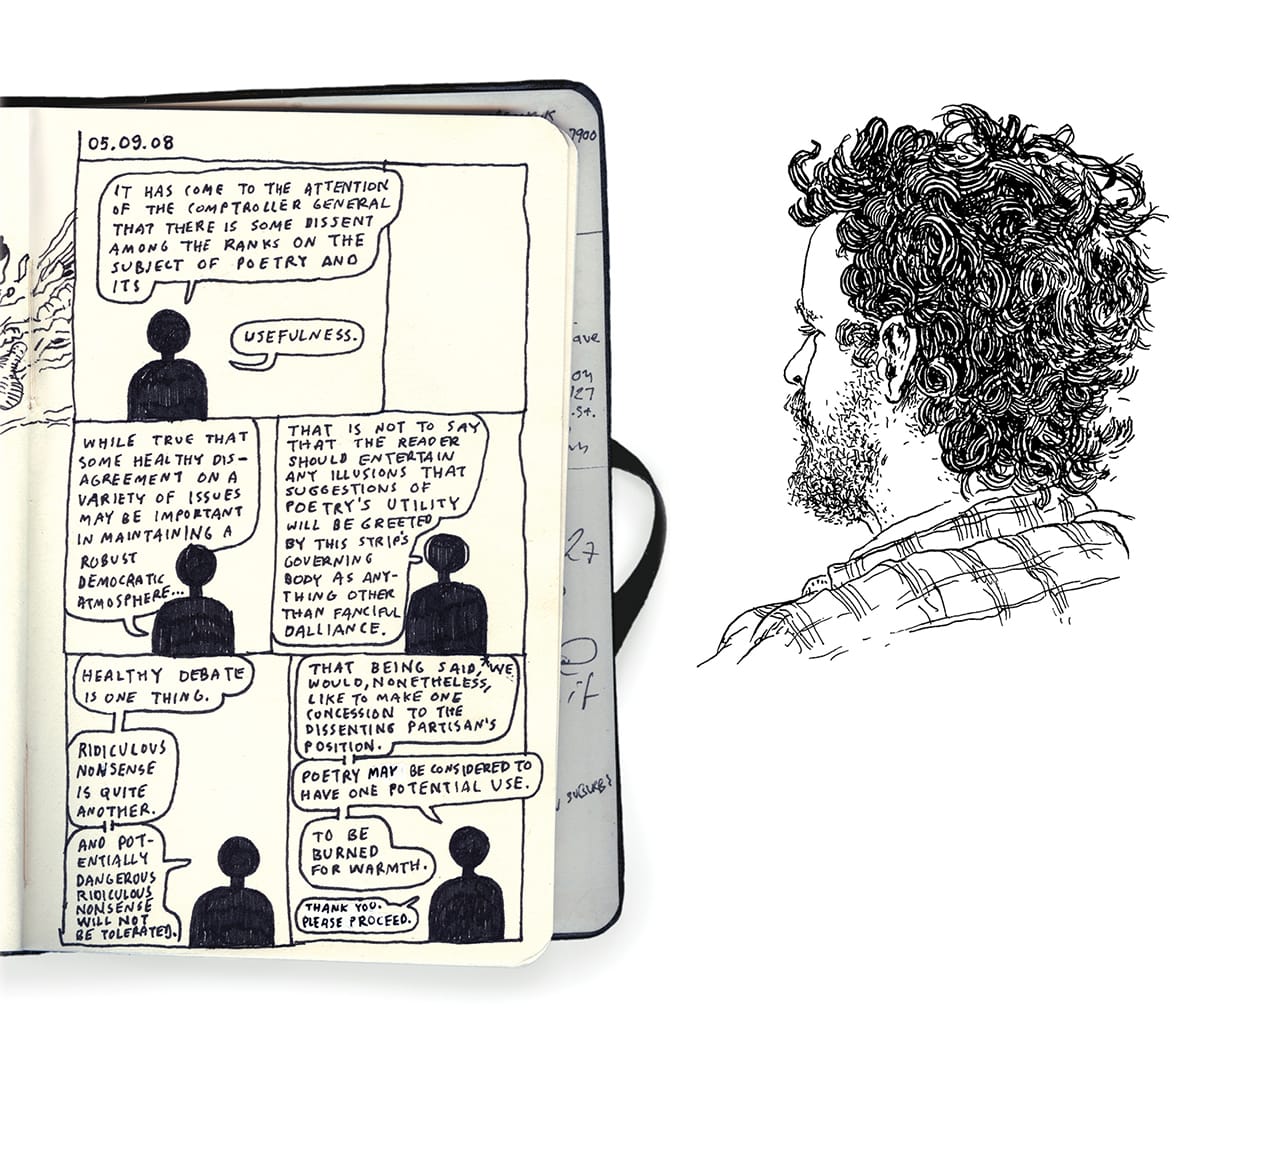 05.09.08
IT HAS COME TO THE ATTENTION
OF THE COMPTROLLER GENERAL
THAT THERE IS SOME DISSENT
AMONG THE RANKS ON THE
SUBJECT OF POETRY AND
ITS
USEFULNESS.
WHILE TRUE THAT
SOME HEALTHY DIS-
AGREEMENT ON A
VARIETY OF ISSUES
MAY BE IMPORTANT
IN MAINTAINING A
ROBUST
DEMOCRATIC
ATMOSPHERE...
THAT IS NOT TO SAY
THAT THE READER
SHOULD ENTERTAIN
ANY ILLUSIONS THAT
SUGGESTIONS OF
POETRY'S UTILITY
WILL BE GREETED
BY THIS STRIP'S
GOVERNING
BODY AS ANY-
THING OTHER
THAN FANCIFUL
DALLIANCE.
HEALTHY DEBATE
IS ONE THING.
RIDICULOUS
NONSENSE
IS QUITE
ANOTHER.
AND POT-
ENTIALLY
DANGEROUS
RIDICULOUS
NONSENSE
WILL NOT
BE TOLERATED.
THAT BEING SAID, WE
WOULD, NONETHELESS,
LIKE TO MAKE ONE
CONCESSION TO THE
DISSENTING PARTISAN'S
POSITION.
POETRY MAY BE CONSIDERED TO
HAVE ONE POTENTIAL USE.
TO BE
BURNED
FOR WARMTH.
THANK YOU.
PLEASE PROCEED.
7900
ave
27
if